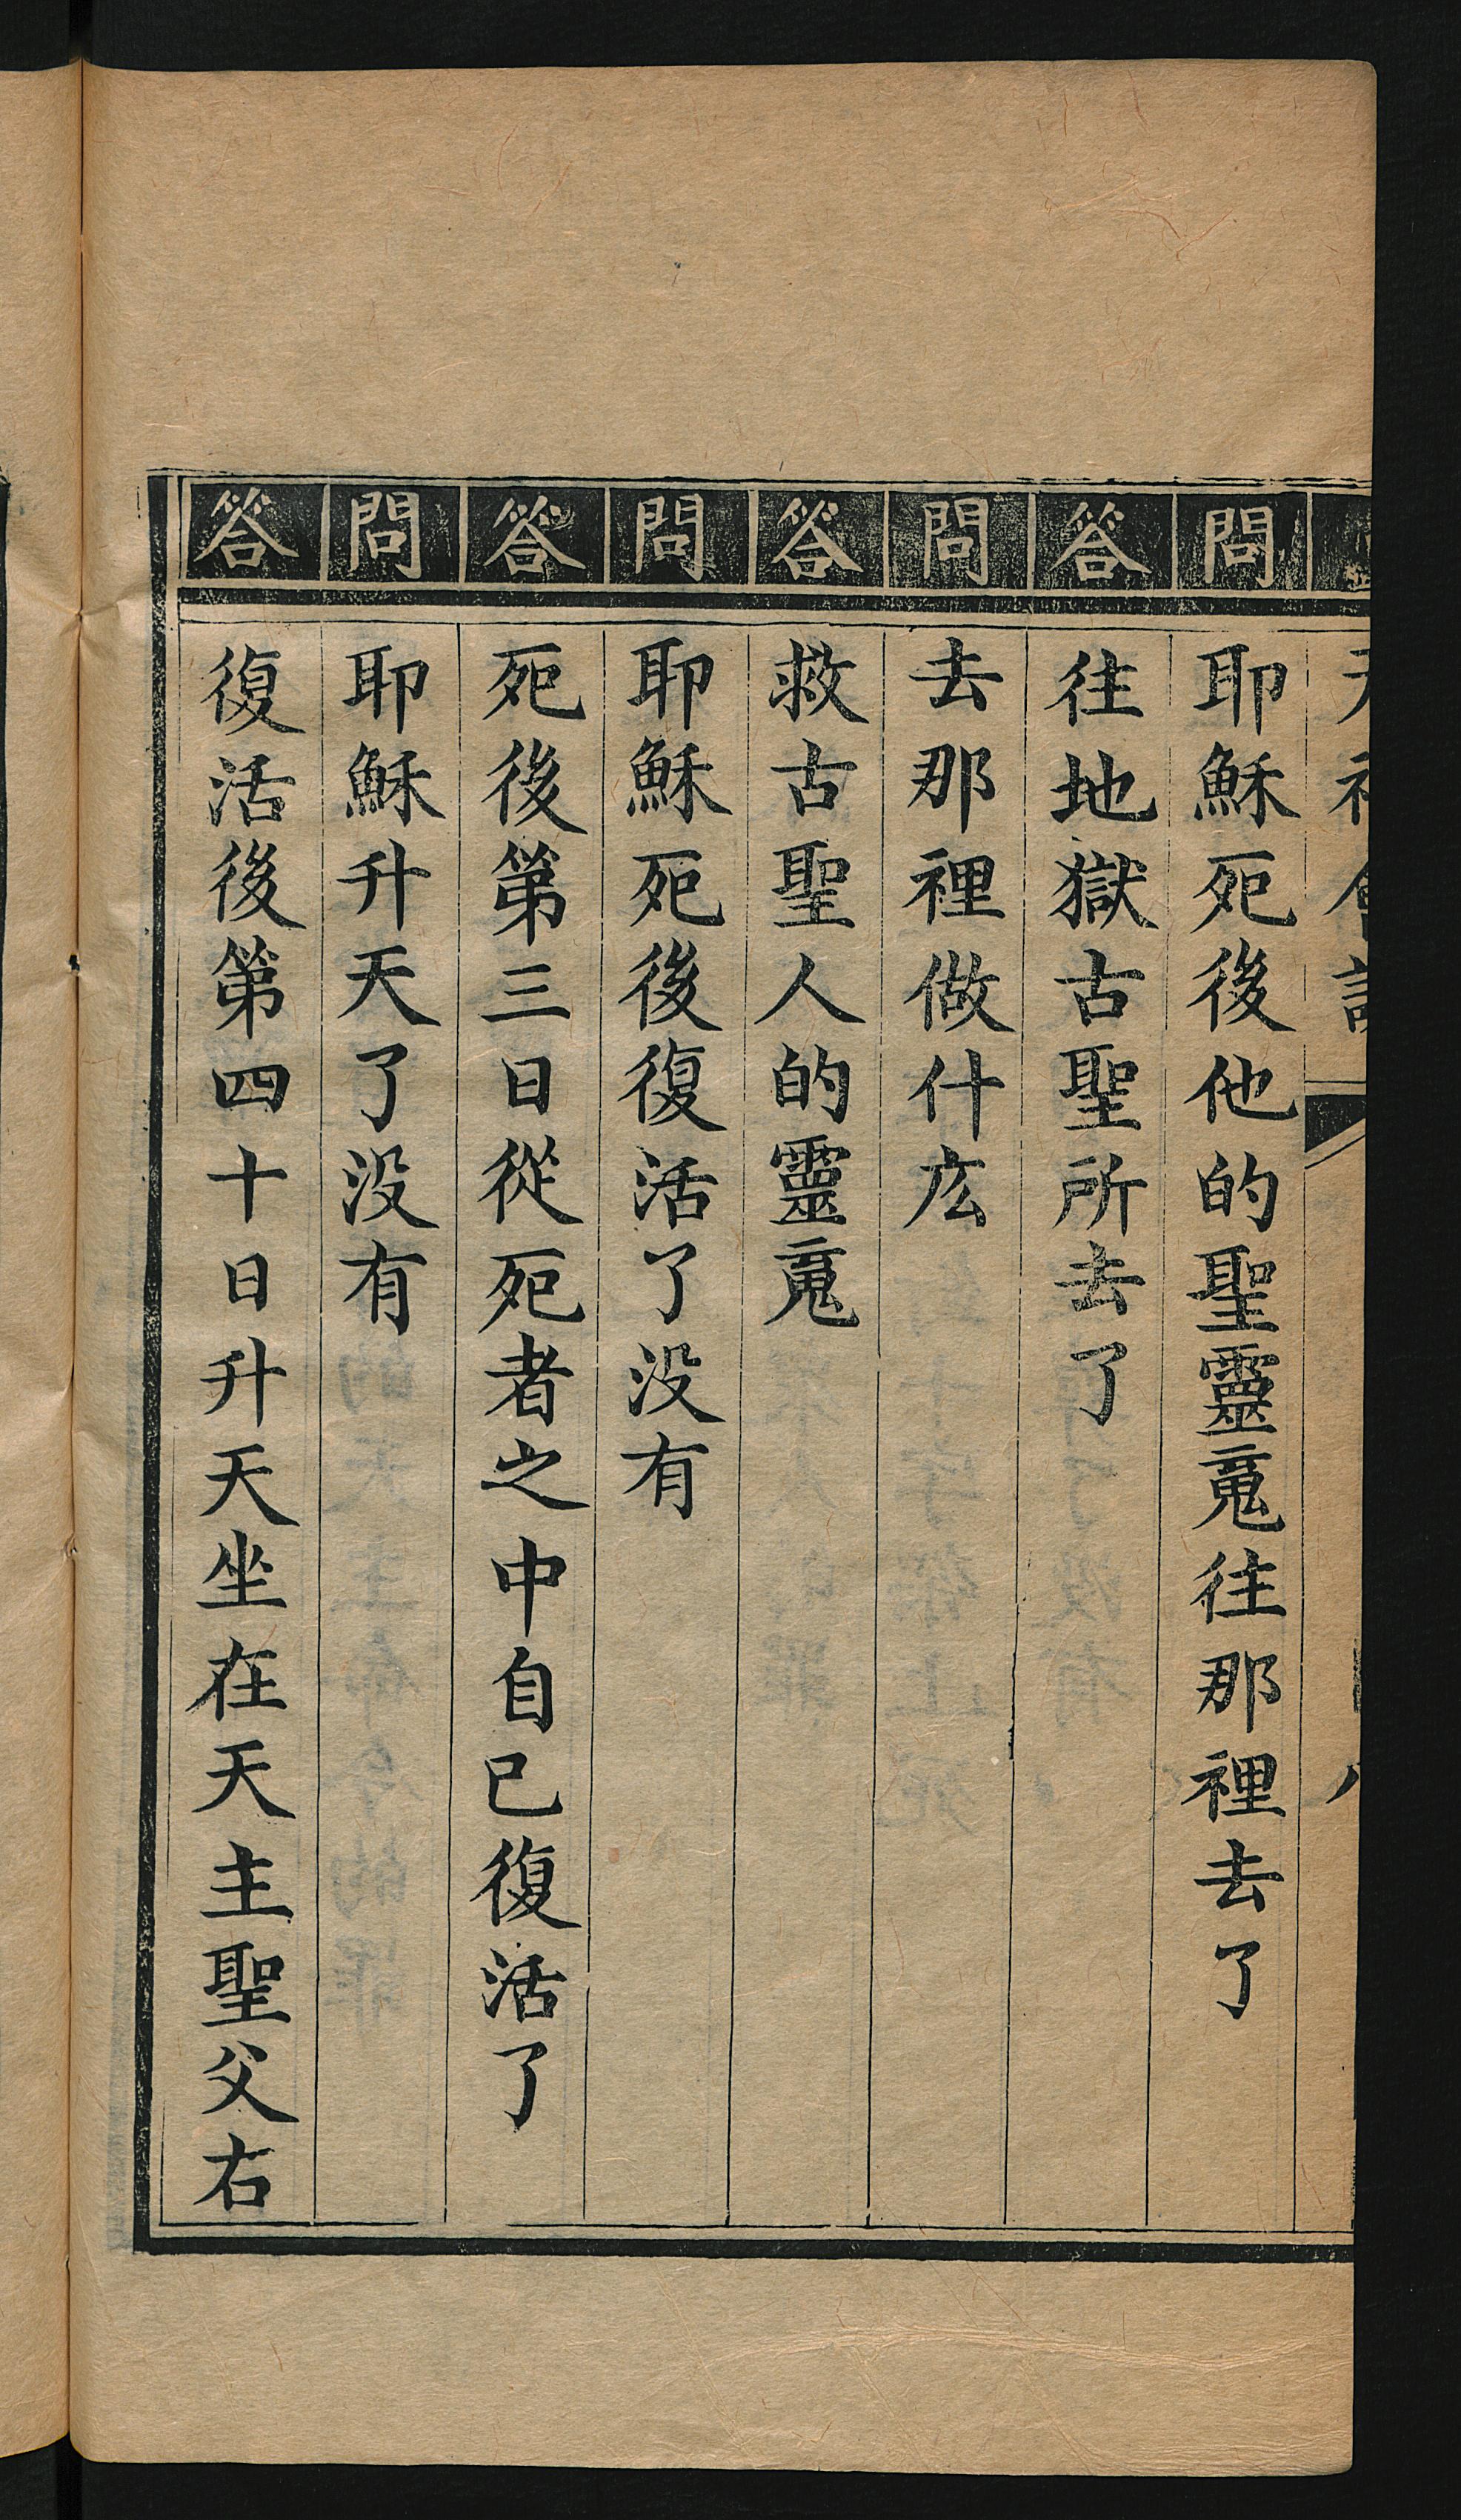 問 耶穌死後他的聖靈䰟往那裡去了
答 往地獄古聖所去了
問 去那裡做什庅
答 救古聖人的靈䰟
問 耶穌死後復活了没有
答 死後第三日從死者之中自已復活了
問 耶穌升天了没有
答 復活後第四十日升天坐在天主聖父右